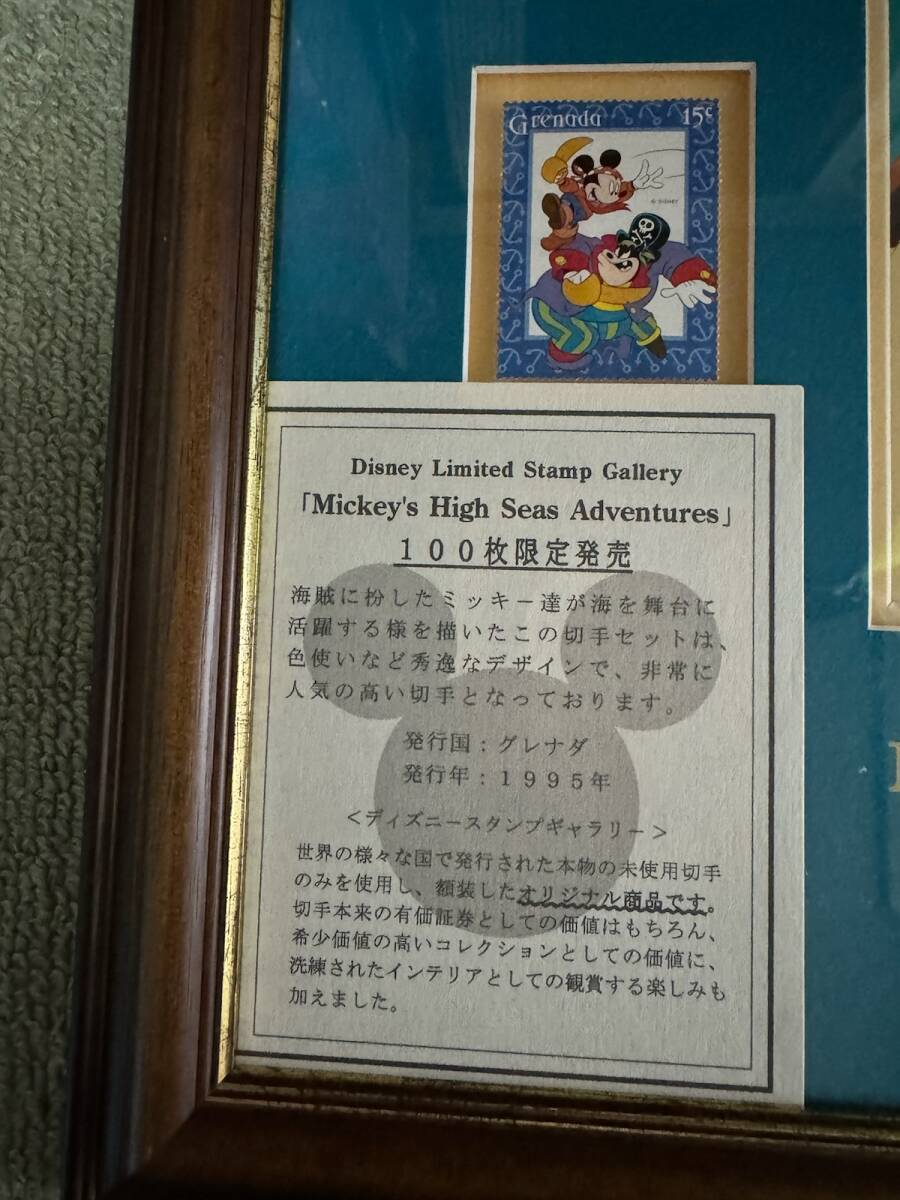 Grenada 15¢
© DISNEY
Disney Limited Stamp Gallery
「Mickey's High Seas Adventures」
100枚限定発売
海賊に扮したミッキー達が海を舞台に
活躍する様を描いたこの切手セットは、
色使いなど秀逸なデザインで、非常に
人気の高い切手となっております。
発行国：グレナダ
発行年：1995年
＜ディズニースタンプギャラリー＞
世界の様々な国で発行された本物の未使用切手
のみを使用し、額装したオリジナル商品です。
切手本来の有価証券としての価値はもちろん、
希少価値の高いコレクションとしての価値に、
洗練されたインテリアとしての観賞する楽しみも
加えました。